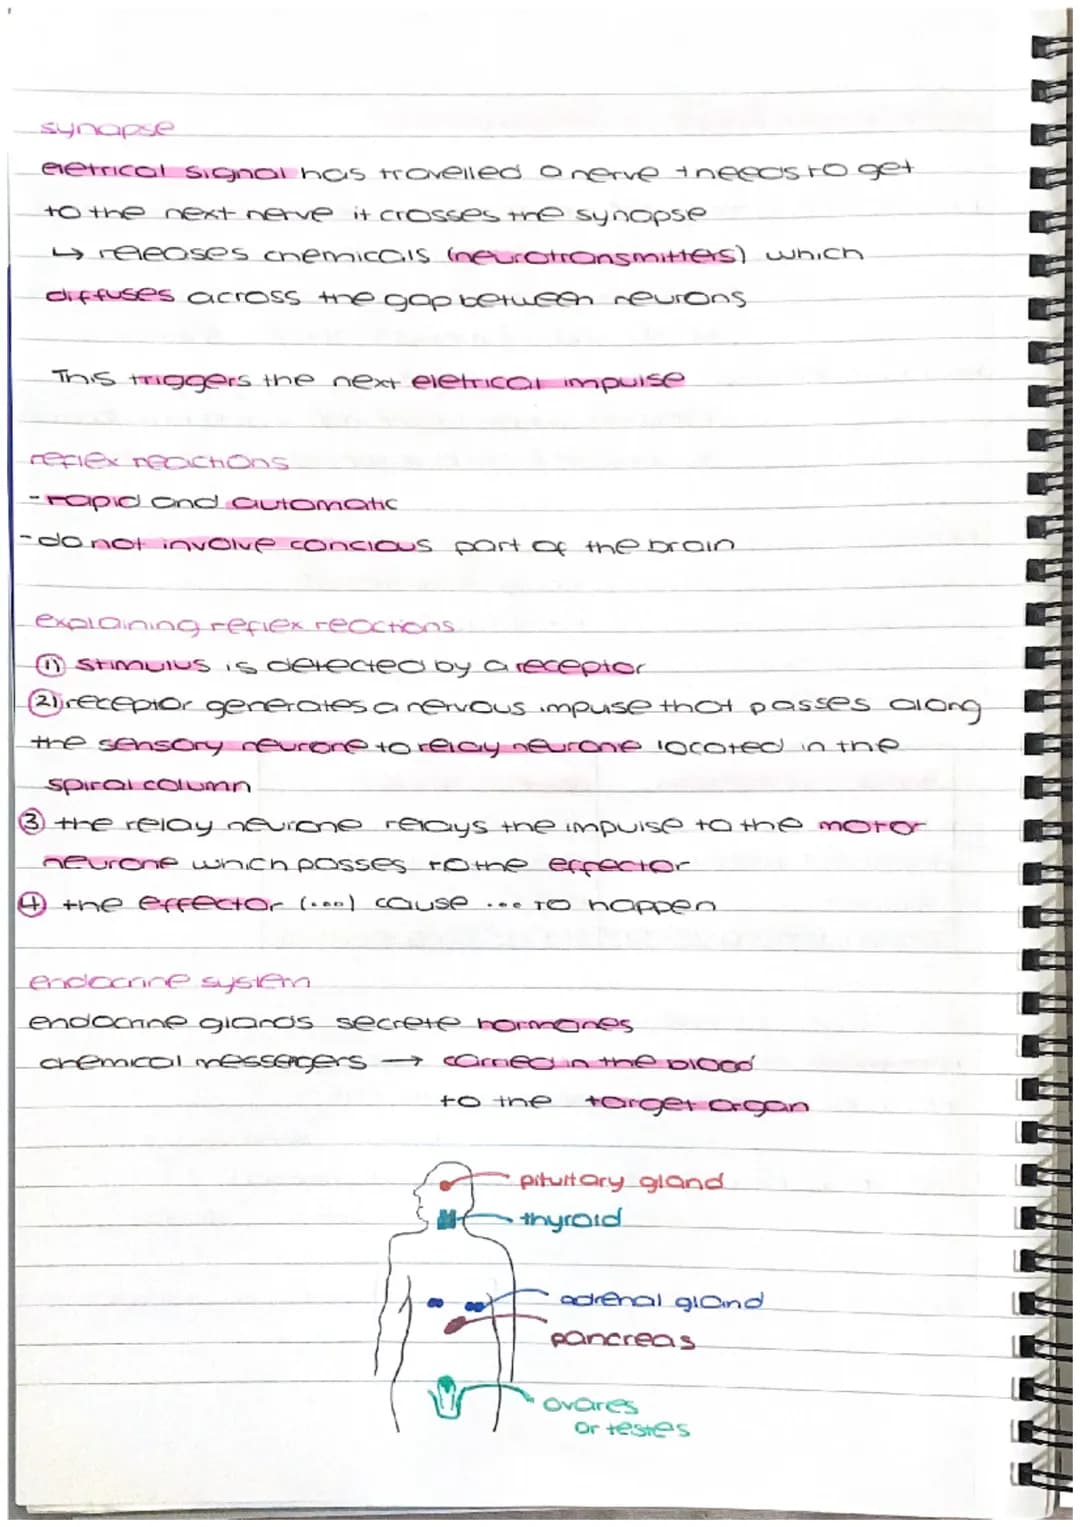 synapse
eletrical signal has travelled a nerve + needs to get
to the next nerve it crosses the synapse
↳ releases chemicals (neurotransmitters) which
diffuses across the gap between neurons
This triggers the next eletrical impulse
reflex reactions
- rapid and automatic
- do not involve concious part of the brain
explaining reflex reactions
① stimulus is detected by a receptor
② receptor generates a nervous impuse that passes along
the sensory neurone to relay neurone located in the
spiral column
③ the relay neurone relays the impulse to the motor
neurone which passes to the effector
④ the effector (...) cause ... to happen
endocrine system
endocrine glands secrete hormones
chemical messengers → carried in the blood
to the target organ
pituitary gland
thyroid
adrenal gland
pancreas
ovares
or testes